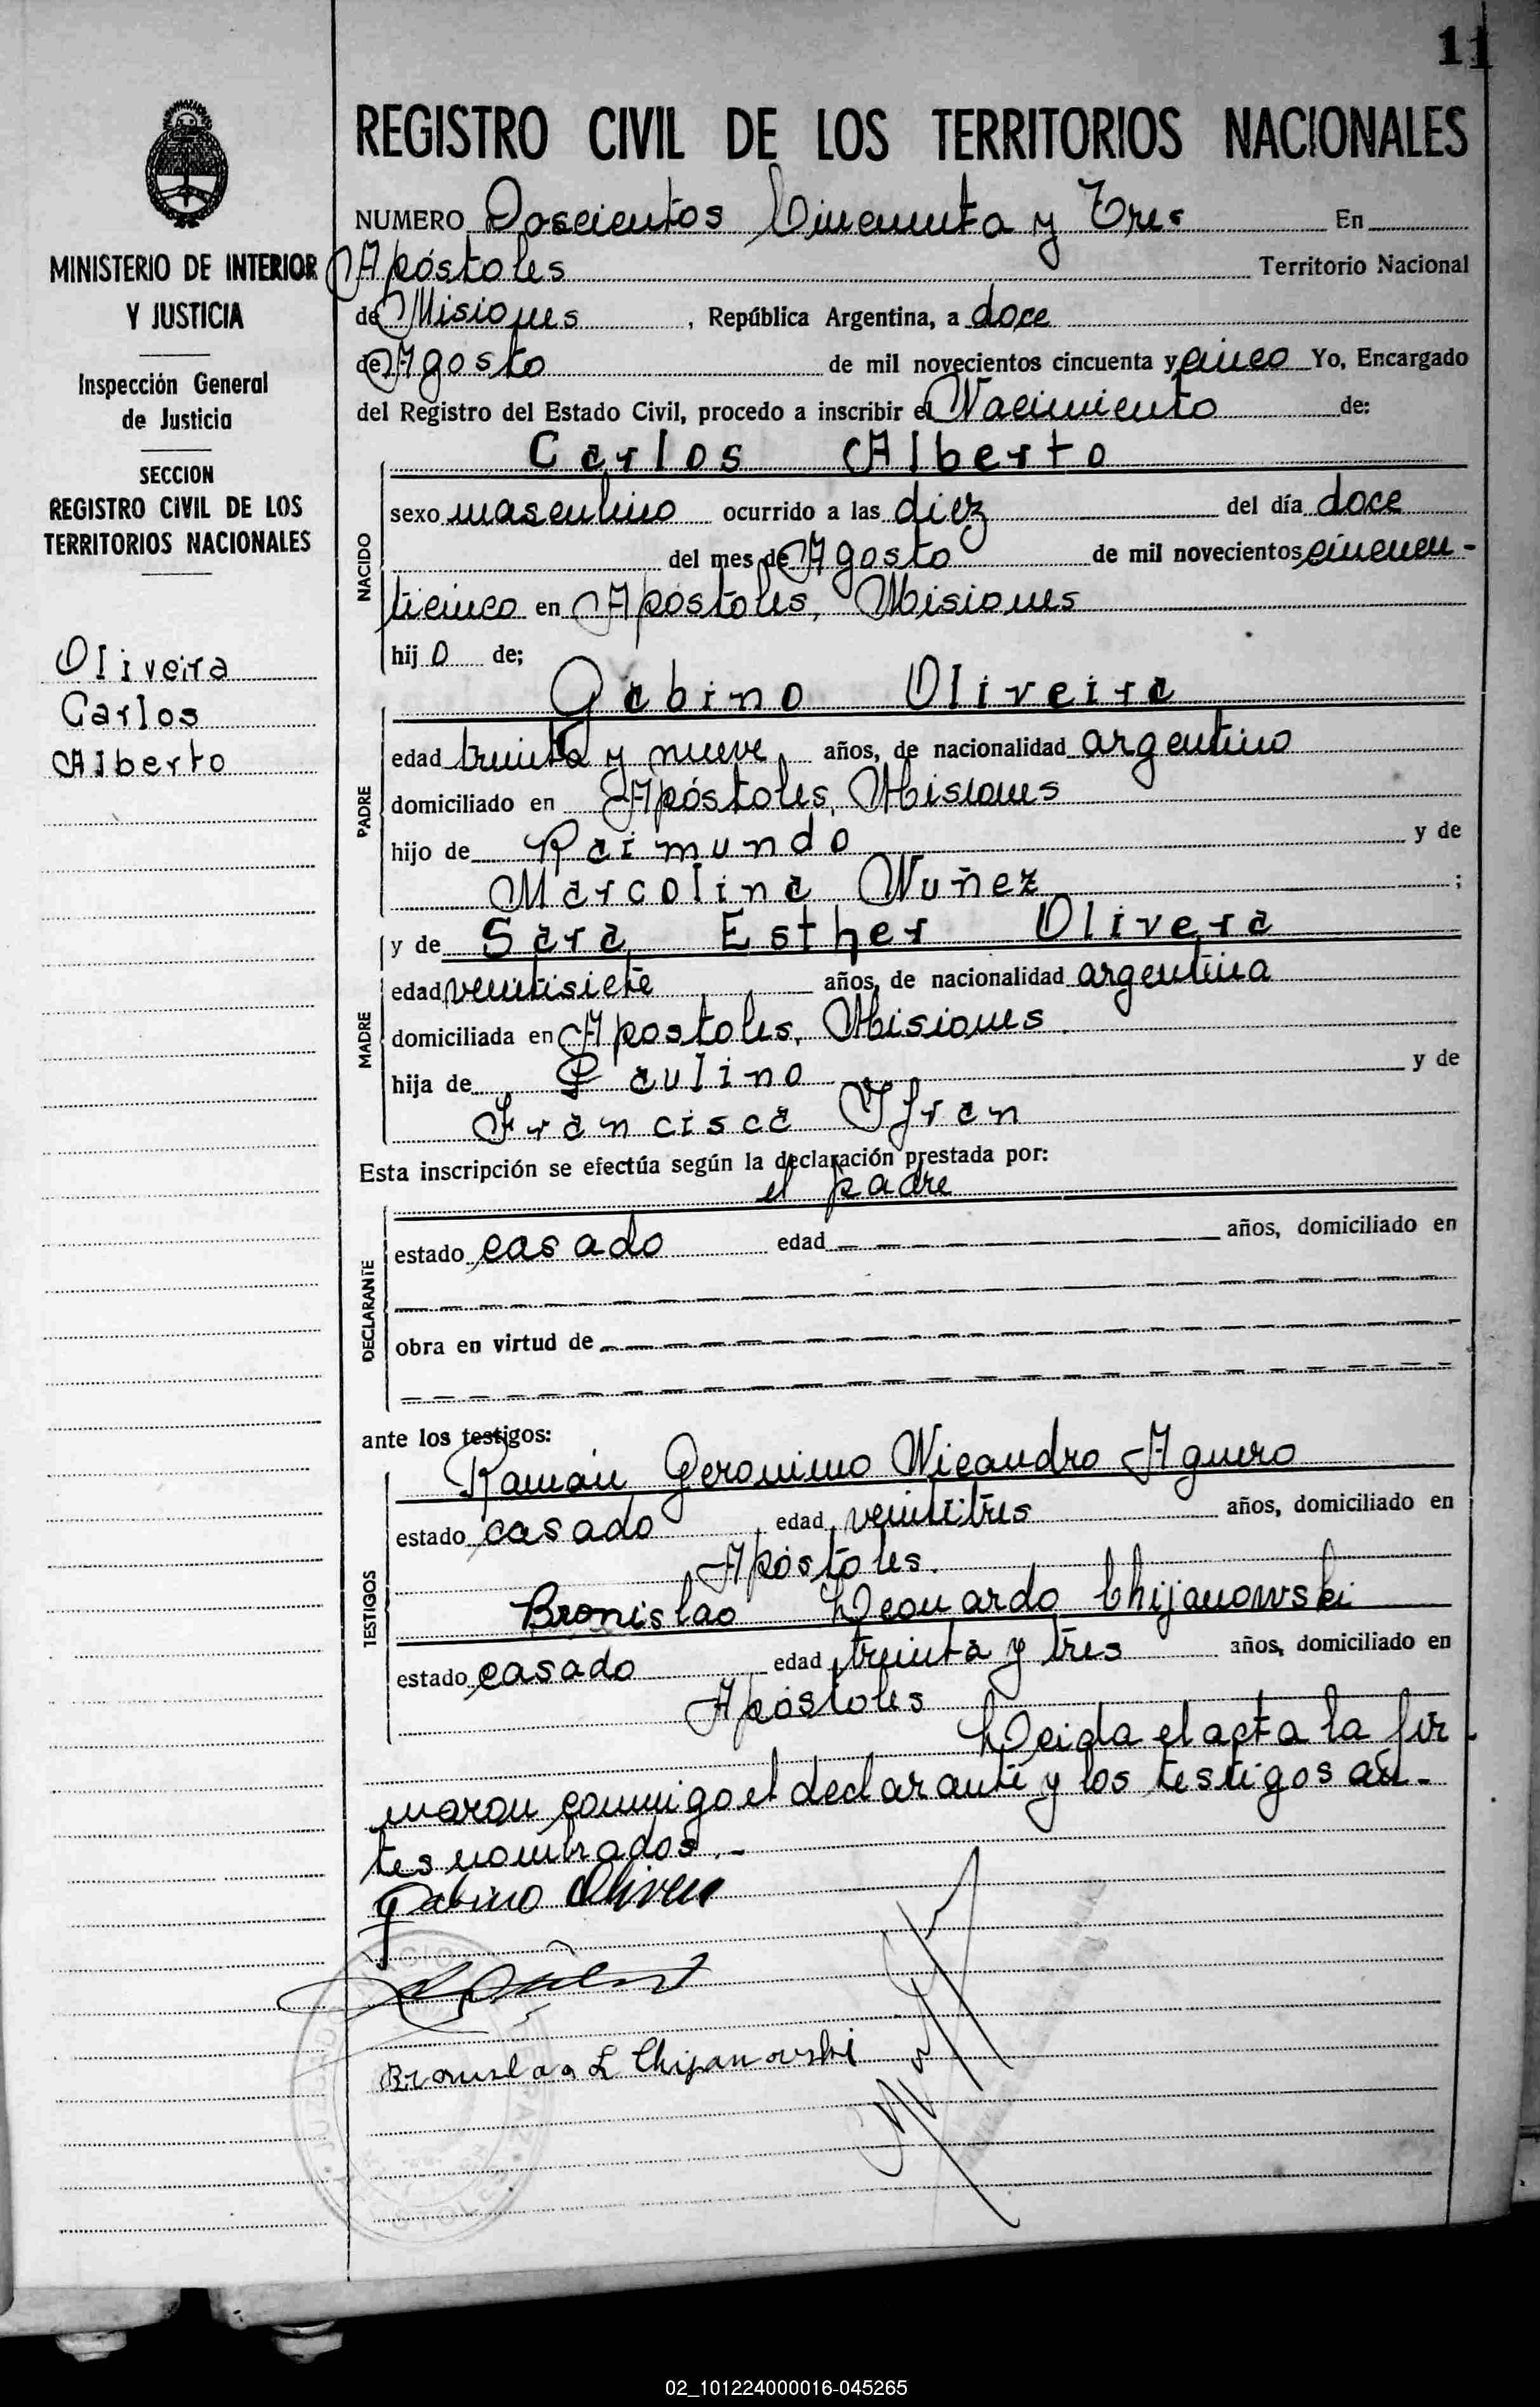 11
REGISTRO CIVIL DE LOS TERRITORIOS NACIONALES
MINISTERIO DE INTERIOR
Y JUSTICIA
Inspección General
de Justicia
SECCION
REGISTRO CIVIL DE LOS
TERRITORIOS NACIONALES
Oliveira
Carlos
Alberto
NUMERO Doscientos Cincuenta y Tres En
Apóstoles Territorio Nacional
de Misiones, República Argentina, a doce
de Agosto de mil novecientos cincuenta y cinco Yo, Encargado
del Registro del Estado Civil, procedo a inscribir el Nacimiento de:
Carlos Alberto
NACIDO
sexo masculino ocurrido a las diez del día doce
del mes de Agosto de mil novecientos cincuen-
ticinco en Apóstoles, Misiones
hijo de;
Gabino Oliveira
PADRE
edad treinta y nueve años, de nacionalidad argentino
domiciliado en Apóstoles, Misiones
hijo de Raimundo y de
Marcolina Nuñez ;
y de Sara Esther Olivera
MADRE
edad veintisiete años, de nacionalidad argentina
domiciliada en Apostoles, Misiones.
hija de Paulino y de
Francisca Ifran
Esta inscripción se efectúa según la declaración prestada por:
el padre
DECLARANTE
estado casado edad años, domiciliado en
obra en virtud de
ante los testigos:
Ramón Geronimo Nicandro Aguero
TESTIGOS
estado casado edad veintitres años, domiciliado en
Apóstoles.
Bronislao Leonardo Chijanowski
estado casado edad treinta y tres años, domiciliado en
Apóstoles
Leida el acta la fir
maron conmigo el declarante y los testigos an-
tes nombrados.-
Gabino Olivera
Bronislao L Chijanowski
02_101224000016-045265